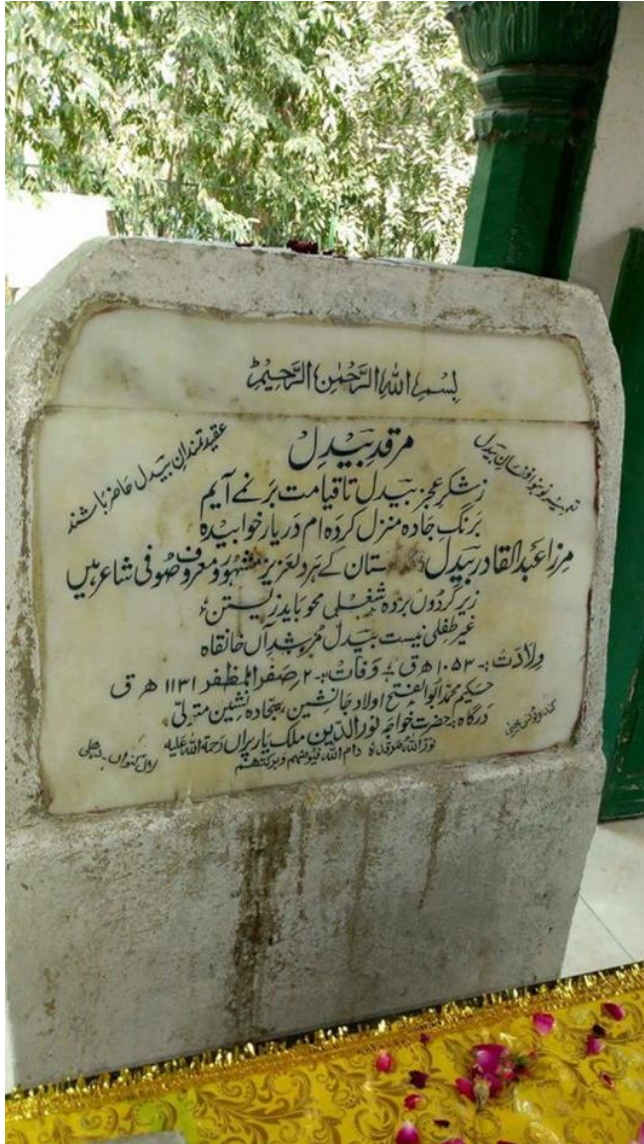 بِسْمِ اللهِ الرَّحْمٰنِ الرَّحِيْمِ
مرقدِ بیدل
عقیدتمندانِ بیدل حاضر باشند
زشکرِ عجز بیدل تا قیامت برنمے آیم
برنگِ جادہ منزل کردہ ام در پار خوابیدہ
مرزا عبدالقادر بیدل ستان کے ہردلعزیز مشہور و معروف صوفی شاعر ہیں
زیر گردوں بردہ شغلی محو باید زیستن
غیر طفلی نیست بیدل مرشدِ آں خانقاہ
ولادت :- ۱۰۵۳ ھ ق وفات :- ۲ صفر المظفر ۱۱۳۱ ھ ق
حکیم محمد ابوالفتح اولاد جانشین سجادہ نشین متولّی
درگاہ :- حضرت خواجہ نور الدین ملک یار پراں رحمۃ اللہ علیہ
نور اللہ مرقدہ دام اللہ فیوضہم وبرکتہم